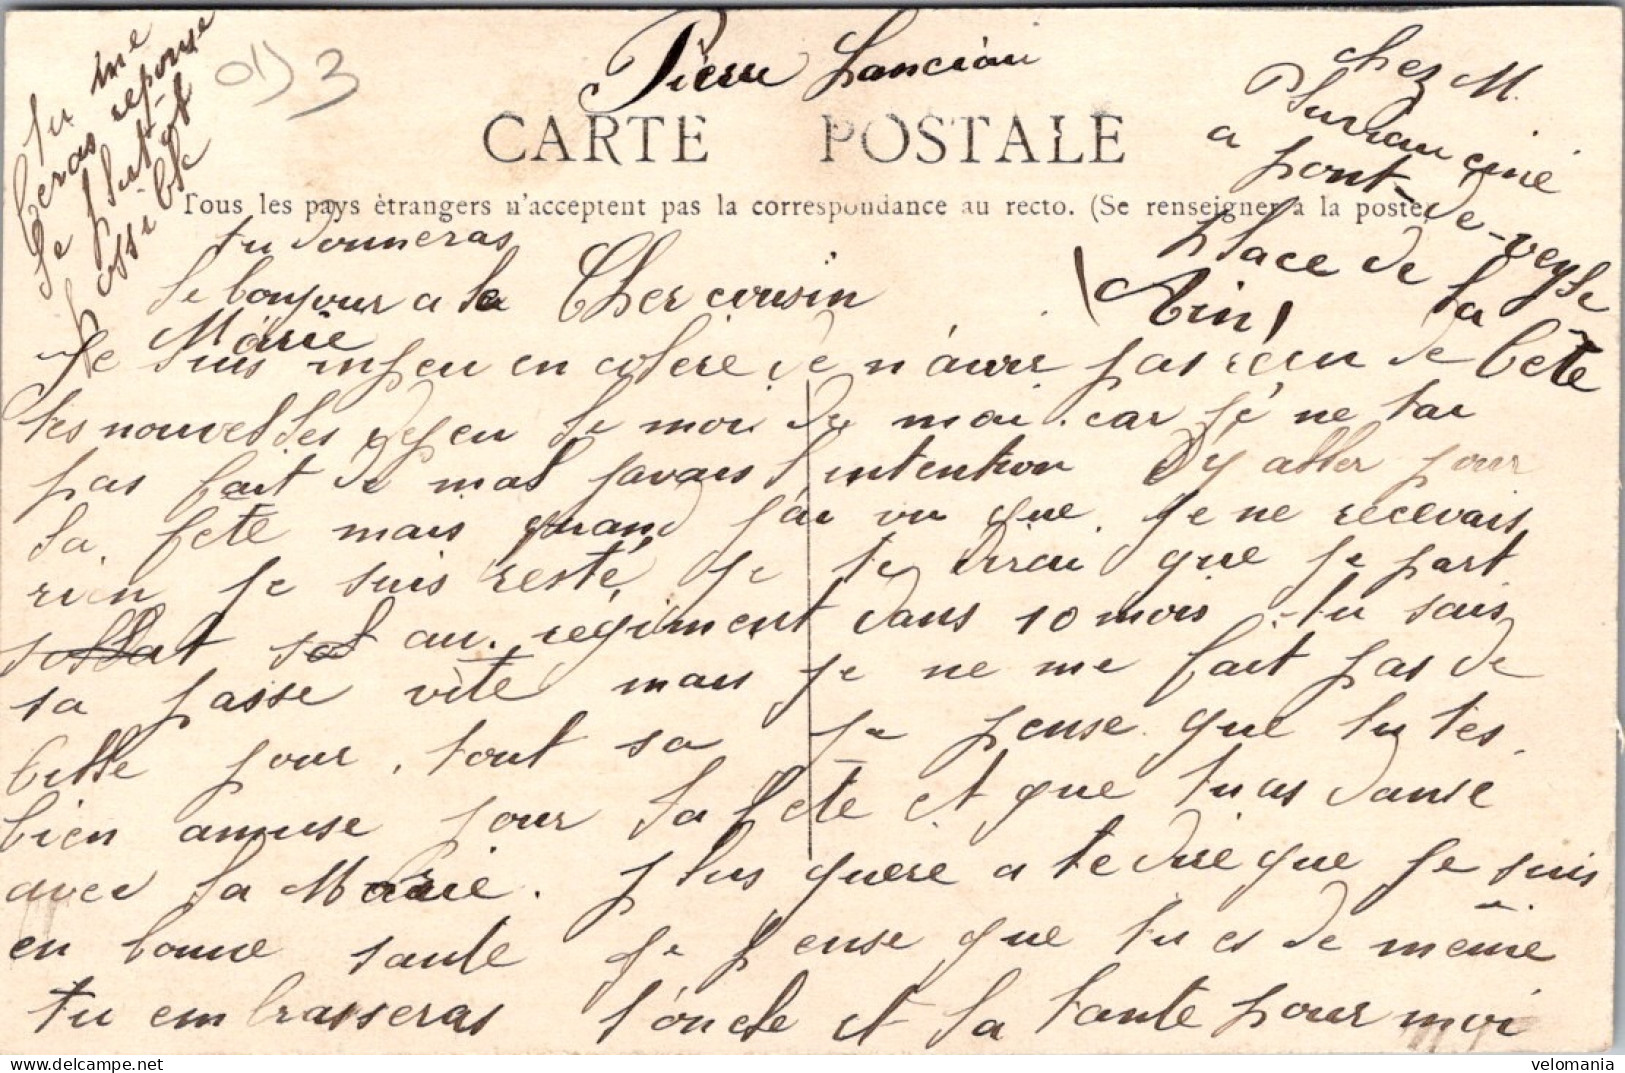 Pierre Lanceiau
01) 3
CARTE POSTALE
Tous les pays étrangers n'acceptent pas la correspondance au recto. (Se renseigner à la poste)
chez M.
ainé
a pont-de-veyle
place de la
(Ain)
tu me
feras reponse
le plutot
possible
tu donneras
le bonjour a la
Marie
Cher cousin
Je suis un peu en colere de n'avoir pas recu de
tes nouvelles depeu le moi de mai. car je ne tai
pas fait de mal javais l'intention d'y aller pour
la fete mais quand j'ai vu que je ne recevais
rien je suis resté, je te dirai que je part
soldat sol au. régiment dans 10 mois tu sais
sa passe vite mais je ne me fait pas de
bille pour tout sa je pense que tu tes
bien amuse pour la fete et que tu as danse
avec la Marie. plus guere a te dire que je suis
en bonne sante je pense que tu es de même
tu embrasseras l'oncle et la tante pour moi
velomania